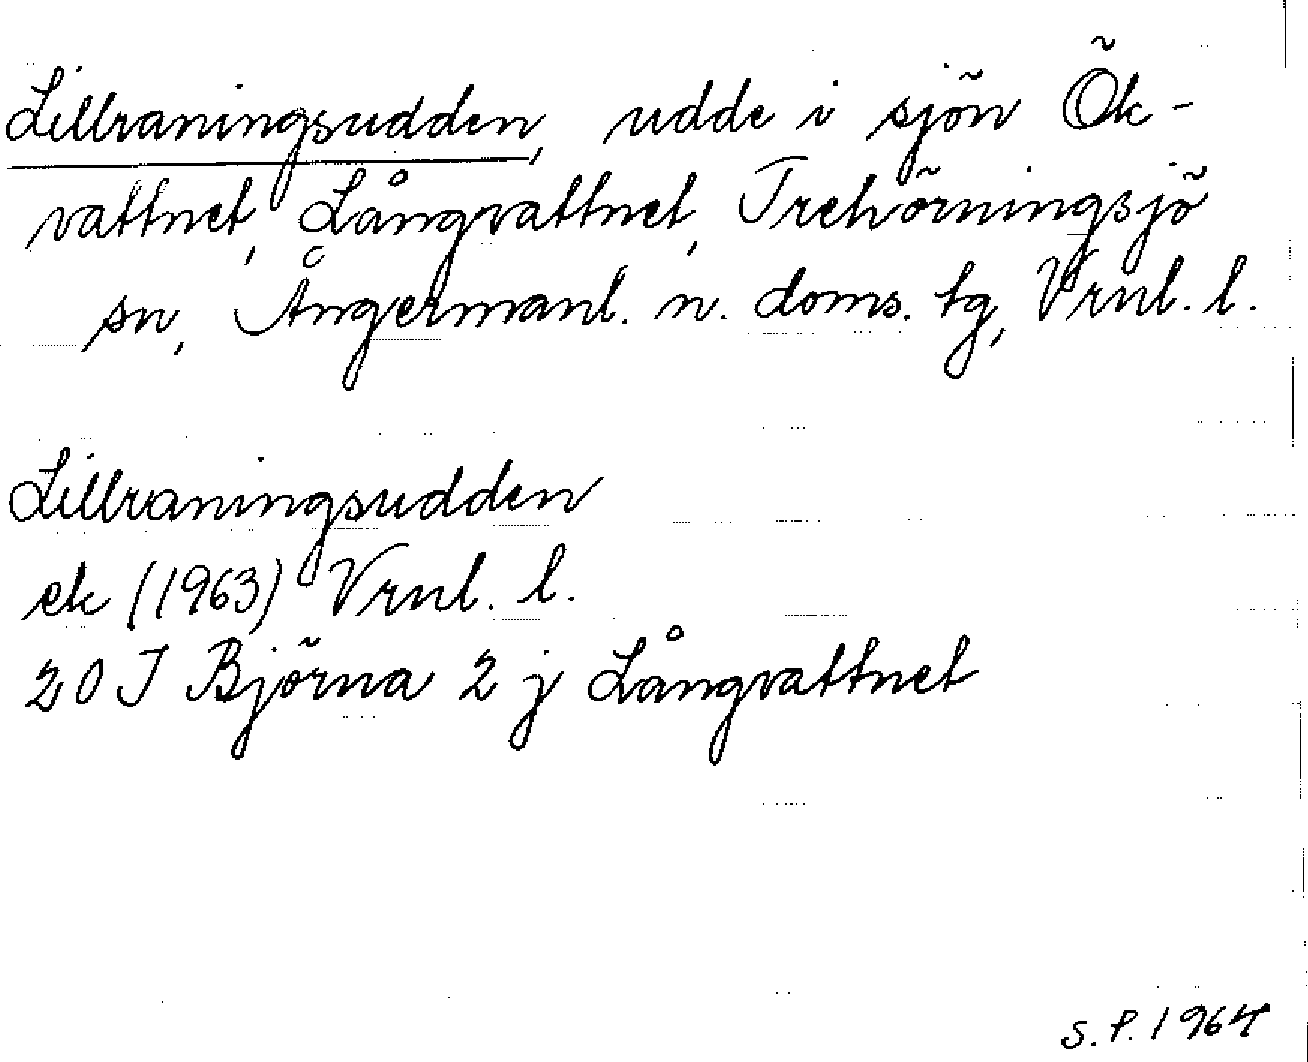 Lillraningsudden, udde i sjön Ök-
vattnet, Långvattnet, Trehörningsjö
sn, Ångermanl. n. doms. tg, Vrnl. l.
Lillraningsudden
ek (1963) Vrnl. l.
20 J Björna 2 j Långvattnet
S.P. 1964